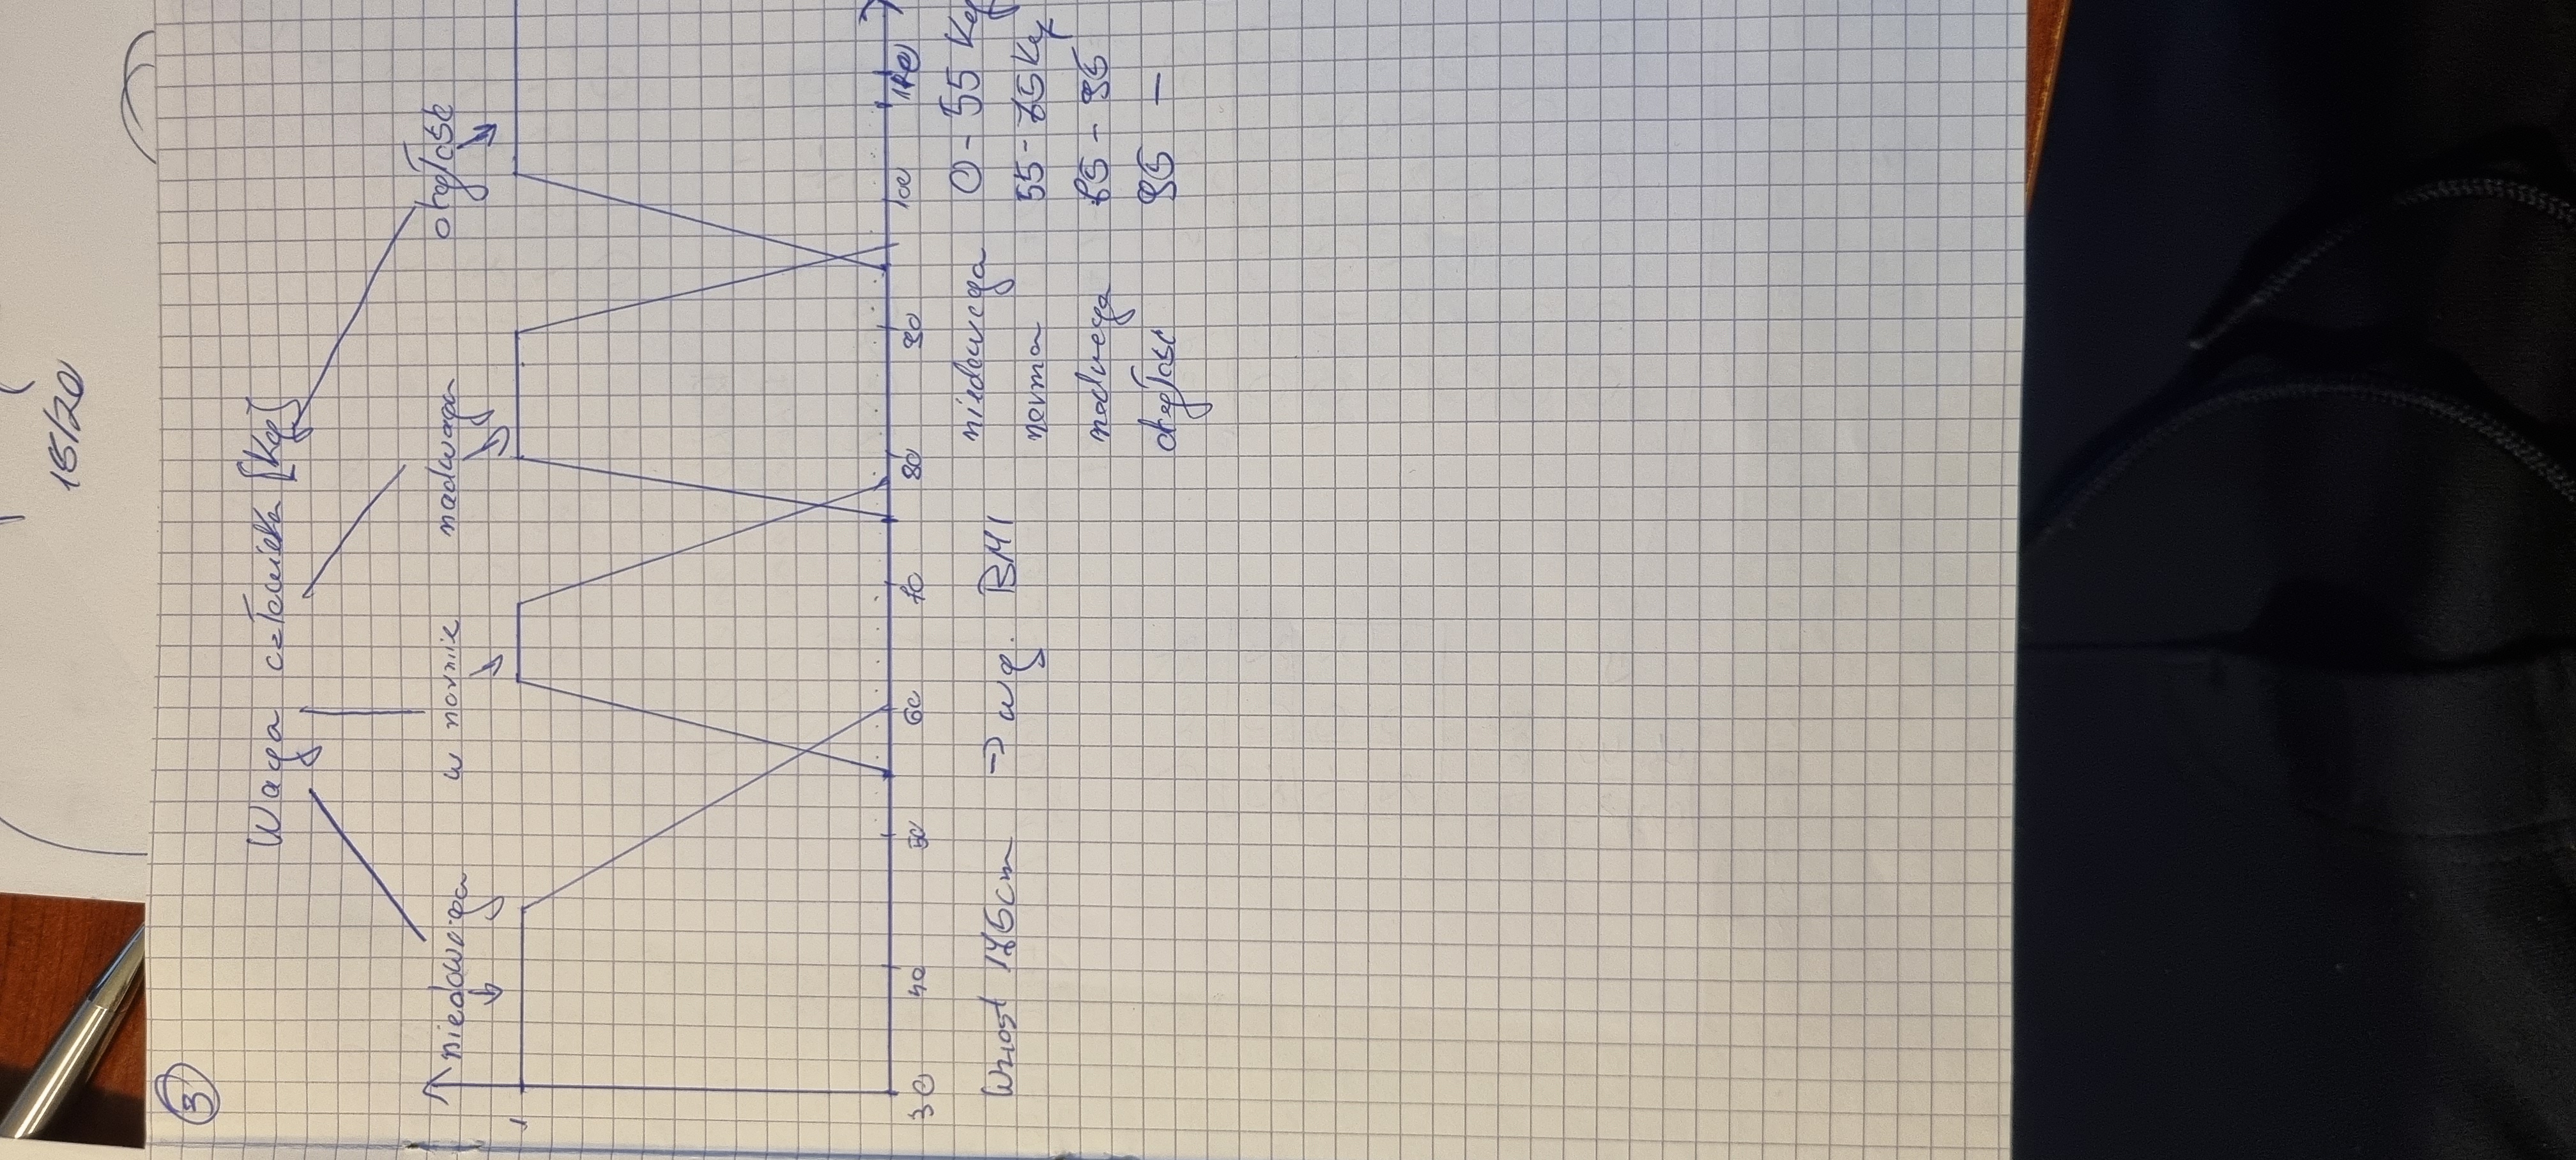 18/20
3
Waga człowieka [kg]
niedowaga w normie nadwaga otyłość
1
30 40 50 60 70 80 90 100 110
Wzrost 175cm → wg. BMI
niedowaga 0 - 55 kg
norma 55 - 75 kg
nadwaga 75 - 95
otyłość 95 -